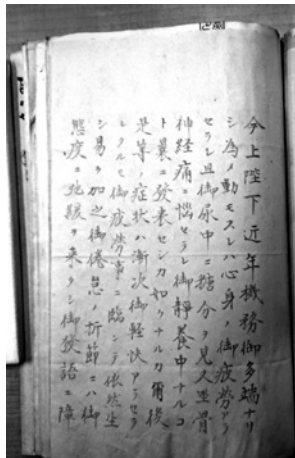 今上陛下近年機務御多端ナリ
シ為メ動モスレハ心身ノ御疲労アラ
セラレ且御尿中ニ糖分ヲ見又坐骨
神経痛ニ悩セラレ御静養中ナルコ
ト曩ニ發表センカ如クナルカ爾後
是等ノ症状ハ漸次御軽快アラセラ
レタルモ御疲労事ニ臨ンテ依然生
シ易ク加之御倦怠ノ折節ニハ御
態度ニ弛緩ヲ来タシ御發語ニ障